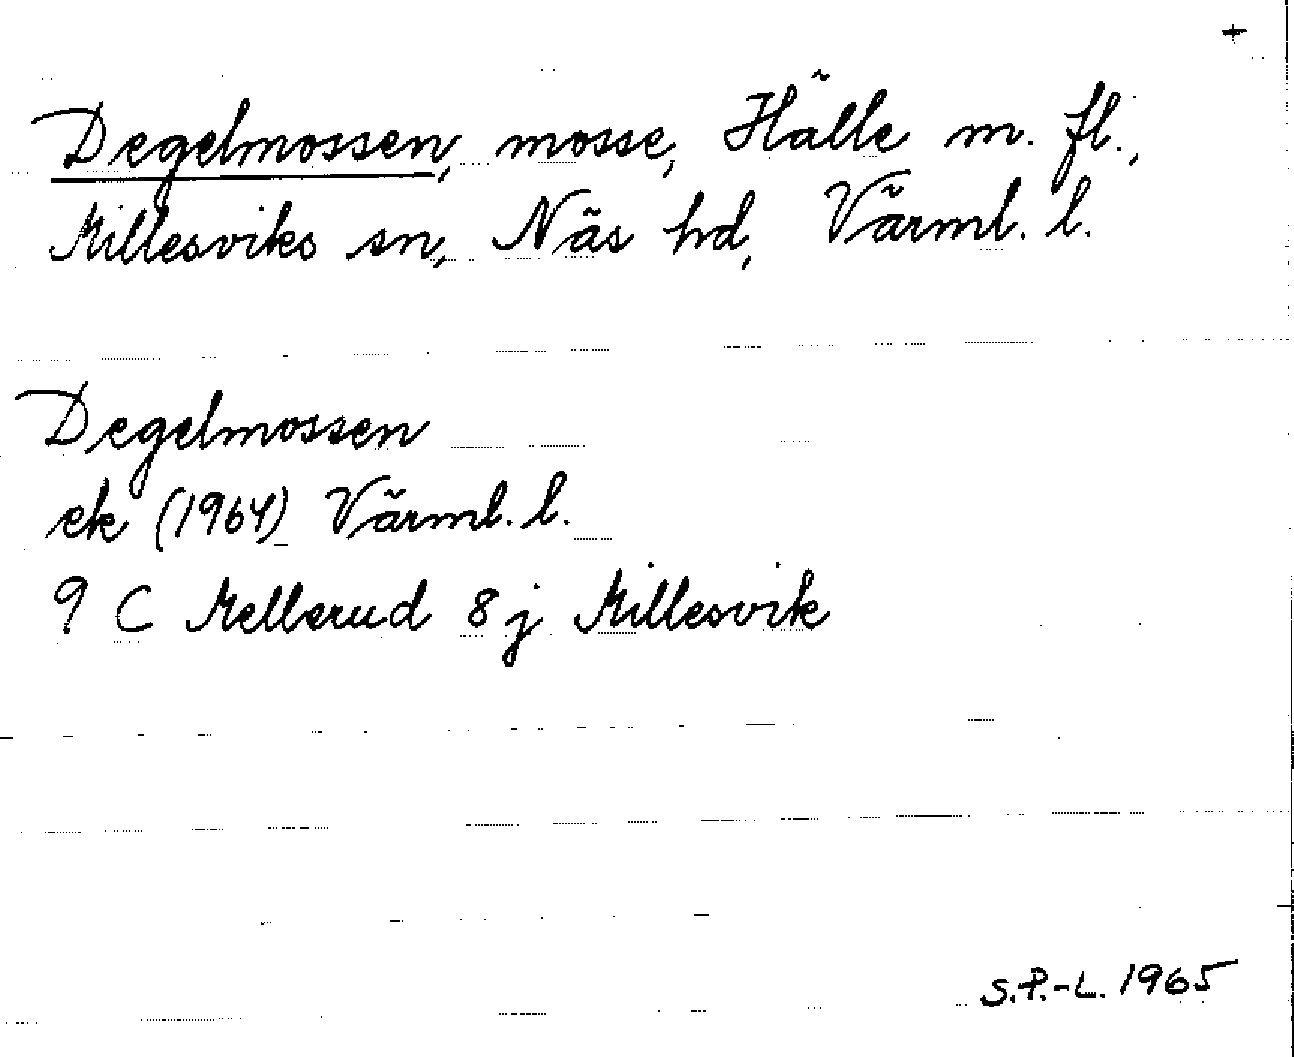 +
Degelmossen, mosse, Hälle m. fl.,
Millesviks sn, Näs hd, Värml. l.
Degelmossen
ek (1964) Värml. l.
9 C Mellerud 8 j Millesvik
S.P.-L. 1965